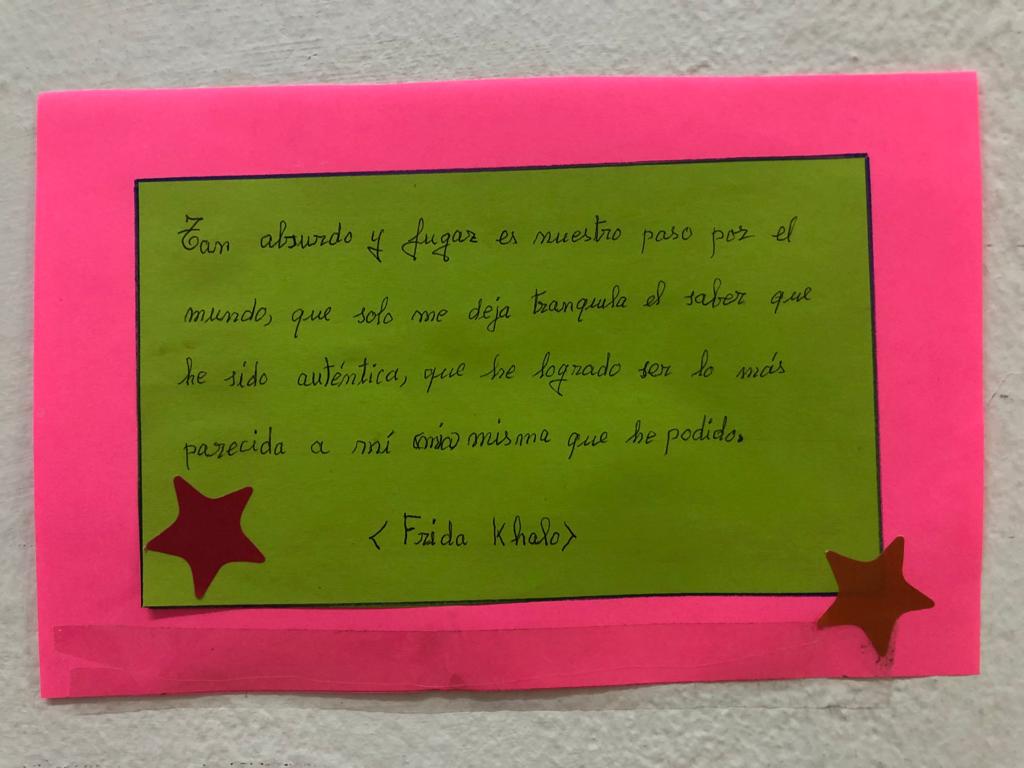 Tan absurdo y fugaz es nuestro paso por el
mundo, que solo me deja tranquila el saber que
he sido auténtica, que he logrado ser lo más
parecida a mí misma que he podido.
<Frida Khalo>